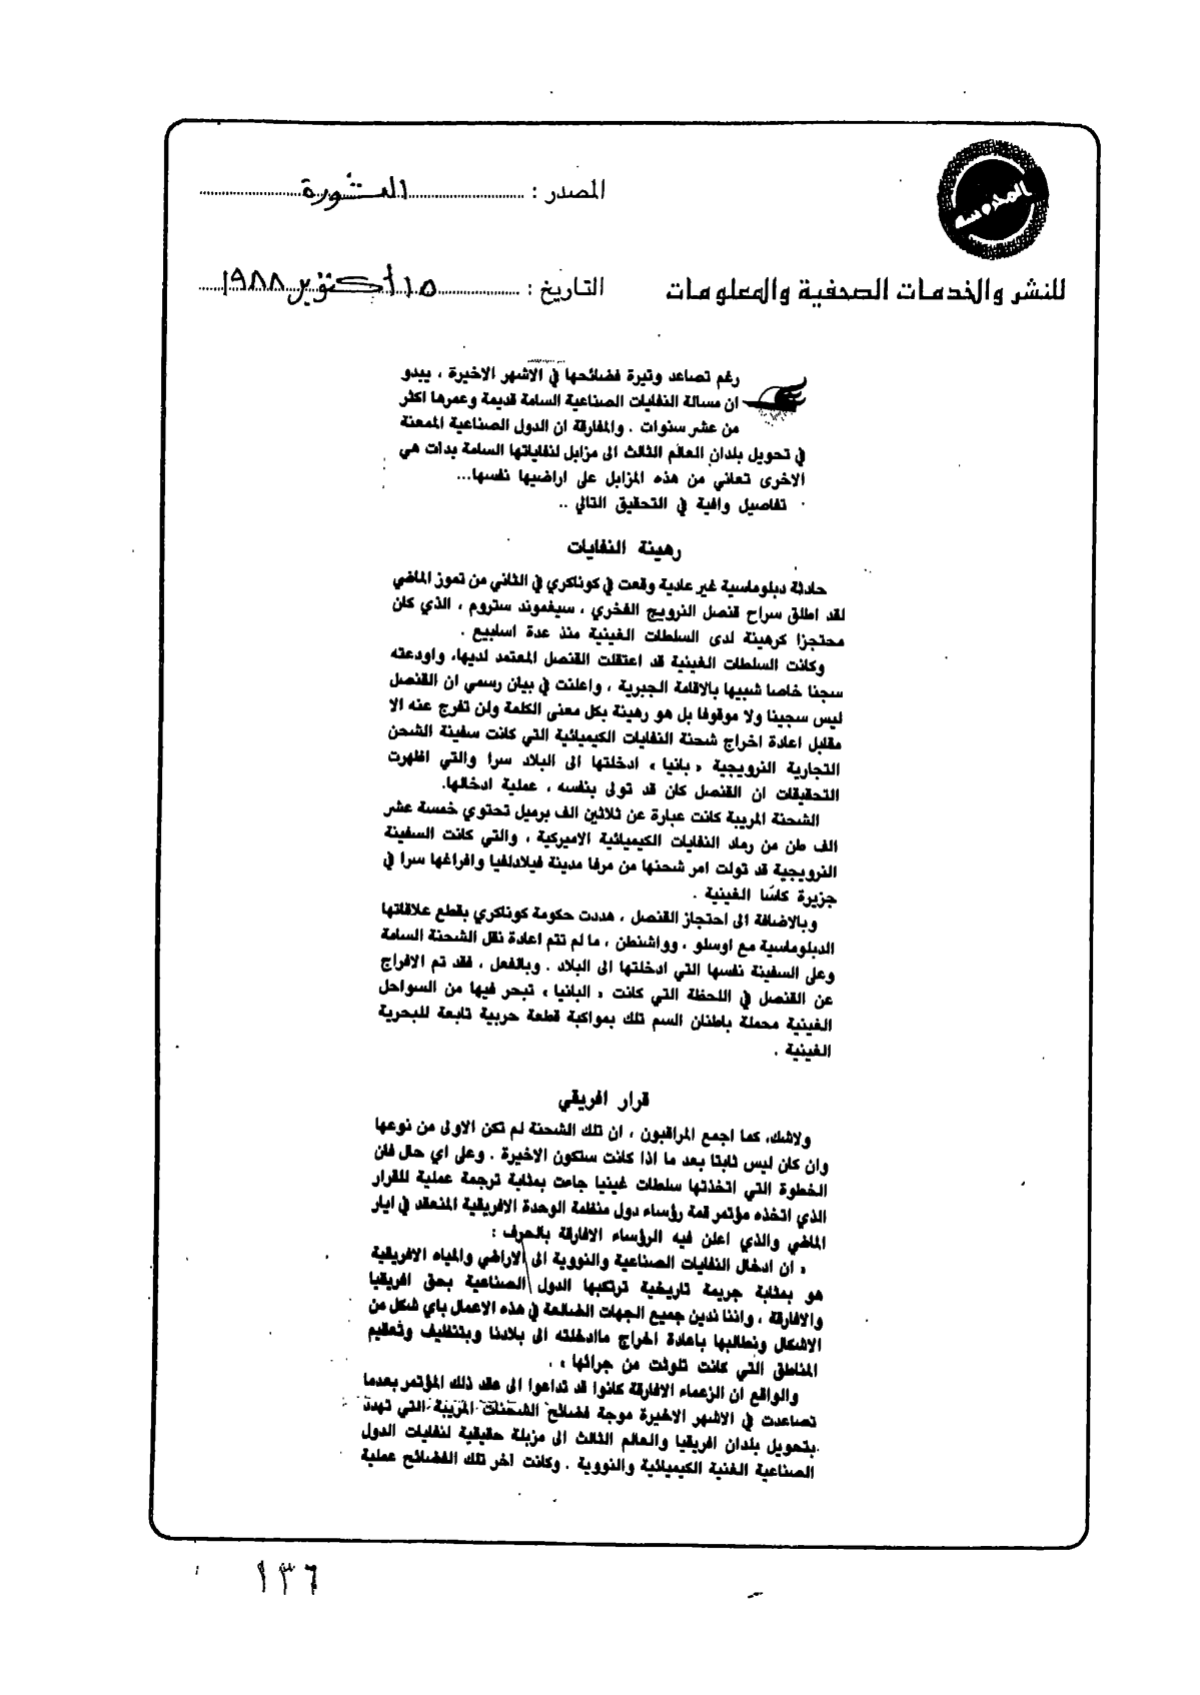 المحروسه
المصدر : الثورة
للنشر والخدمات الصحفية والمعلومات
التاريخ : ١٥ أكتوبر ١٩٨٨
رغم تصاعد وتيرة فضائحها في الاشهر الاخيرة ، يبدو
ان مسالة النفايات الصناعية السامة قديمة وعمرها اكثر
من عشر سنوات . والمفارقة ان الدول الصناعية الممعنة
في تحويل بلدان العالم الثالث الى مزابل لنفاياتها السامة بدات هي
الاخرى تعاني من هذه المزابل على اراضيها نفسها...
تفاصيل وافية في التحقيق التالي ..
رهينة النفايات
حادثة دبلوماسية غير عادية وقعت في كوناكري في الثاني من تموز الماضي
لقد اطلق سراح قنصل النرويج الفخري ، سيغموند ستروم ، الذي كان
محتجزا كرهينة لدى السلطات الغينية منذ عدة اسابيع .
وكانت السلطات الغينية قد اعتقلت القنصل المعتمد لديها، واودعته
سجنا خاصا شبيها بالاقامة الجبرية ، واعلنت في بيان رسمي ان القنصل
ليس سجينا ولا موقوفا بل هو رهينة بكل معنى الكلمة ولن تفرج عنه الا
مقابل اعادة اخراج شحنة النفايات الكيميائية التي كانت سفينة الشحن
التجارية النرويجية « بانيا » ادخلتها الى البلاد سرا والتي اظهرت
التحقيقات ان القنصل كان قد تولى بنفسه ، عملية ادخالها.
الشحنة المريبة كانت عبارة عن ثلاثين الف برميل تحتوي خمسة عشر
الف طن من رماد النفايات الكيميائية الاميركية ، والتي كانت السفينة
النرويجية قد تولت امر شحنها من مرفا مدينة فيلادلفيا وافراغها سرا في
جزيرة كاسا الغينية .
وبالاضافة الى احتجاز القنصل ، هددت حكومة كوناكري بقطع علاقاتها
الدبلوماسية مع اوسلو ، وواشنطن ، ما لم تتم اعادة نقل الشحنة السامة
وعلى السفينة نفسها التي ادخلتها الى البلاد . وبالفعل ، فقد تم الافراج
عن القنصل في اللحظة التي كانت « البانيا » تبحر فيها من السواحل
الغينية محملة باطنان السم تلك بمواكبة قطعة حربية تابعة للبحرية
الغينية .
قرار افريقي
ولاشك، كما اجمع المراقبون ، ان تلك الشحنة لم تكن الاولى من نوعها
وان كان ليس ثابتا بعد ما اذا كانت ستكون الاخيرة . وعلى اي حال فان
الخطوة التي اتخذتها سلطات غينيا جاءت بمثابة ترجمة عملية للقرار
الذي اتخذه مؤتمر قمة رؤساء دول منظمة الوحدة الافريقية المنعقد في ايار
الماضي والذي اعلن فيه الرؤساء الافارقة بالحرف :
« ان ادخال النفايات الصناعية والنووية الى الاراضي والمياه الافريقية
هو بمثابة جريمة تاريخية ترتكبها الدول الصناعية بحق افريقيا
والافارقة ، واننا ندين جميع الجهات الضالعة في هذه الاعمال باي شكل من
الاشكال ونطالبها باعادة اخراج ماادخلته الى بلادنا وبتنظيف وتعقيم
المناطق التي كانت تلوثت من جرائها » .
والواقع ان الزعماء الافارقة كانوا قد تداعوا الى عقد ذلك المؤتمر بعدما
تصاعدت في الاشهر الاخيرة موجة فضائح الشحنات المريبة التي تهدد
بتحويل بلدان افريقيا والعالم الثالث الى مزبلة حقيقية لنفايات الدول
الصناعية الغنية الكيميائية والنووية . وكانت اخر تلك الفضائح عملية
١٣٦